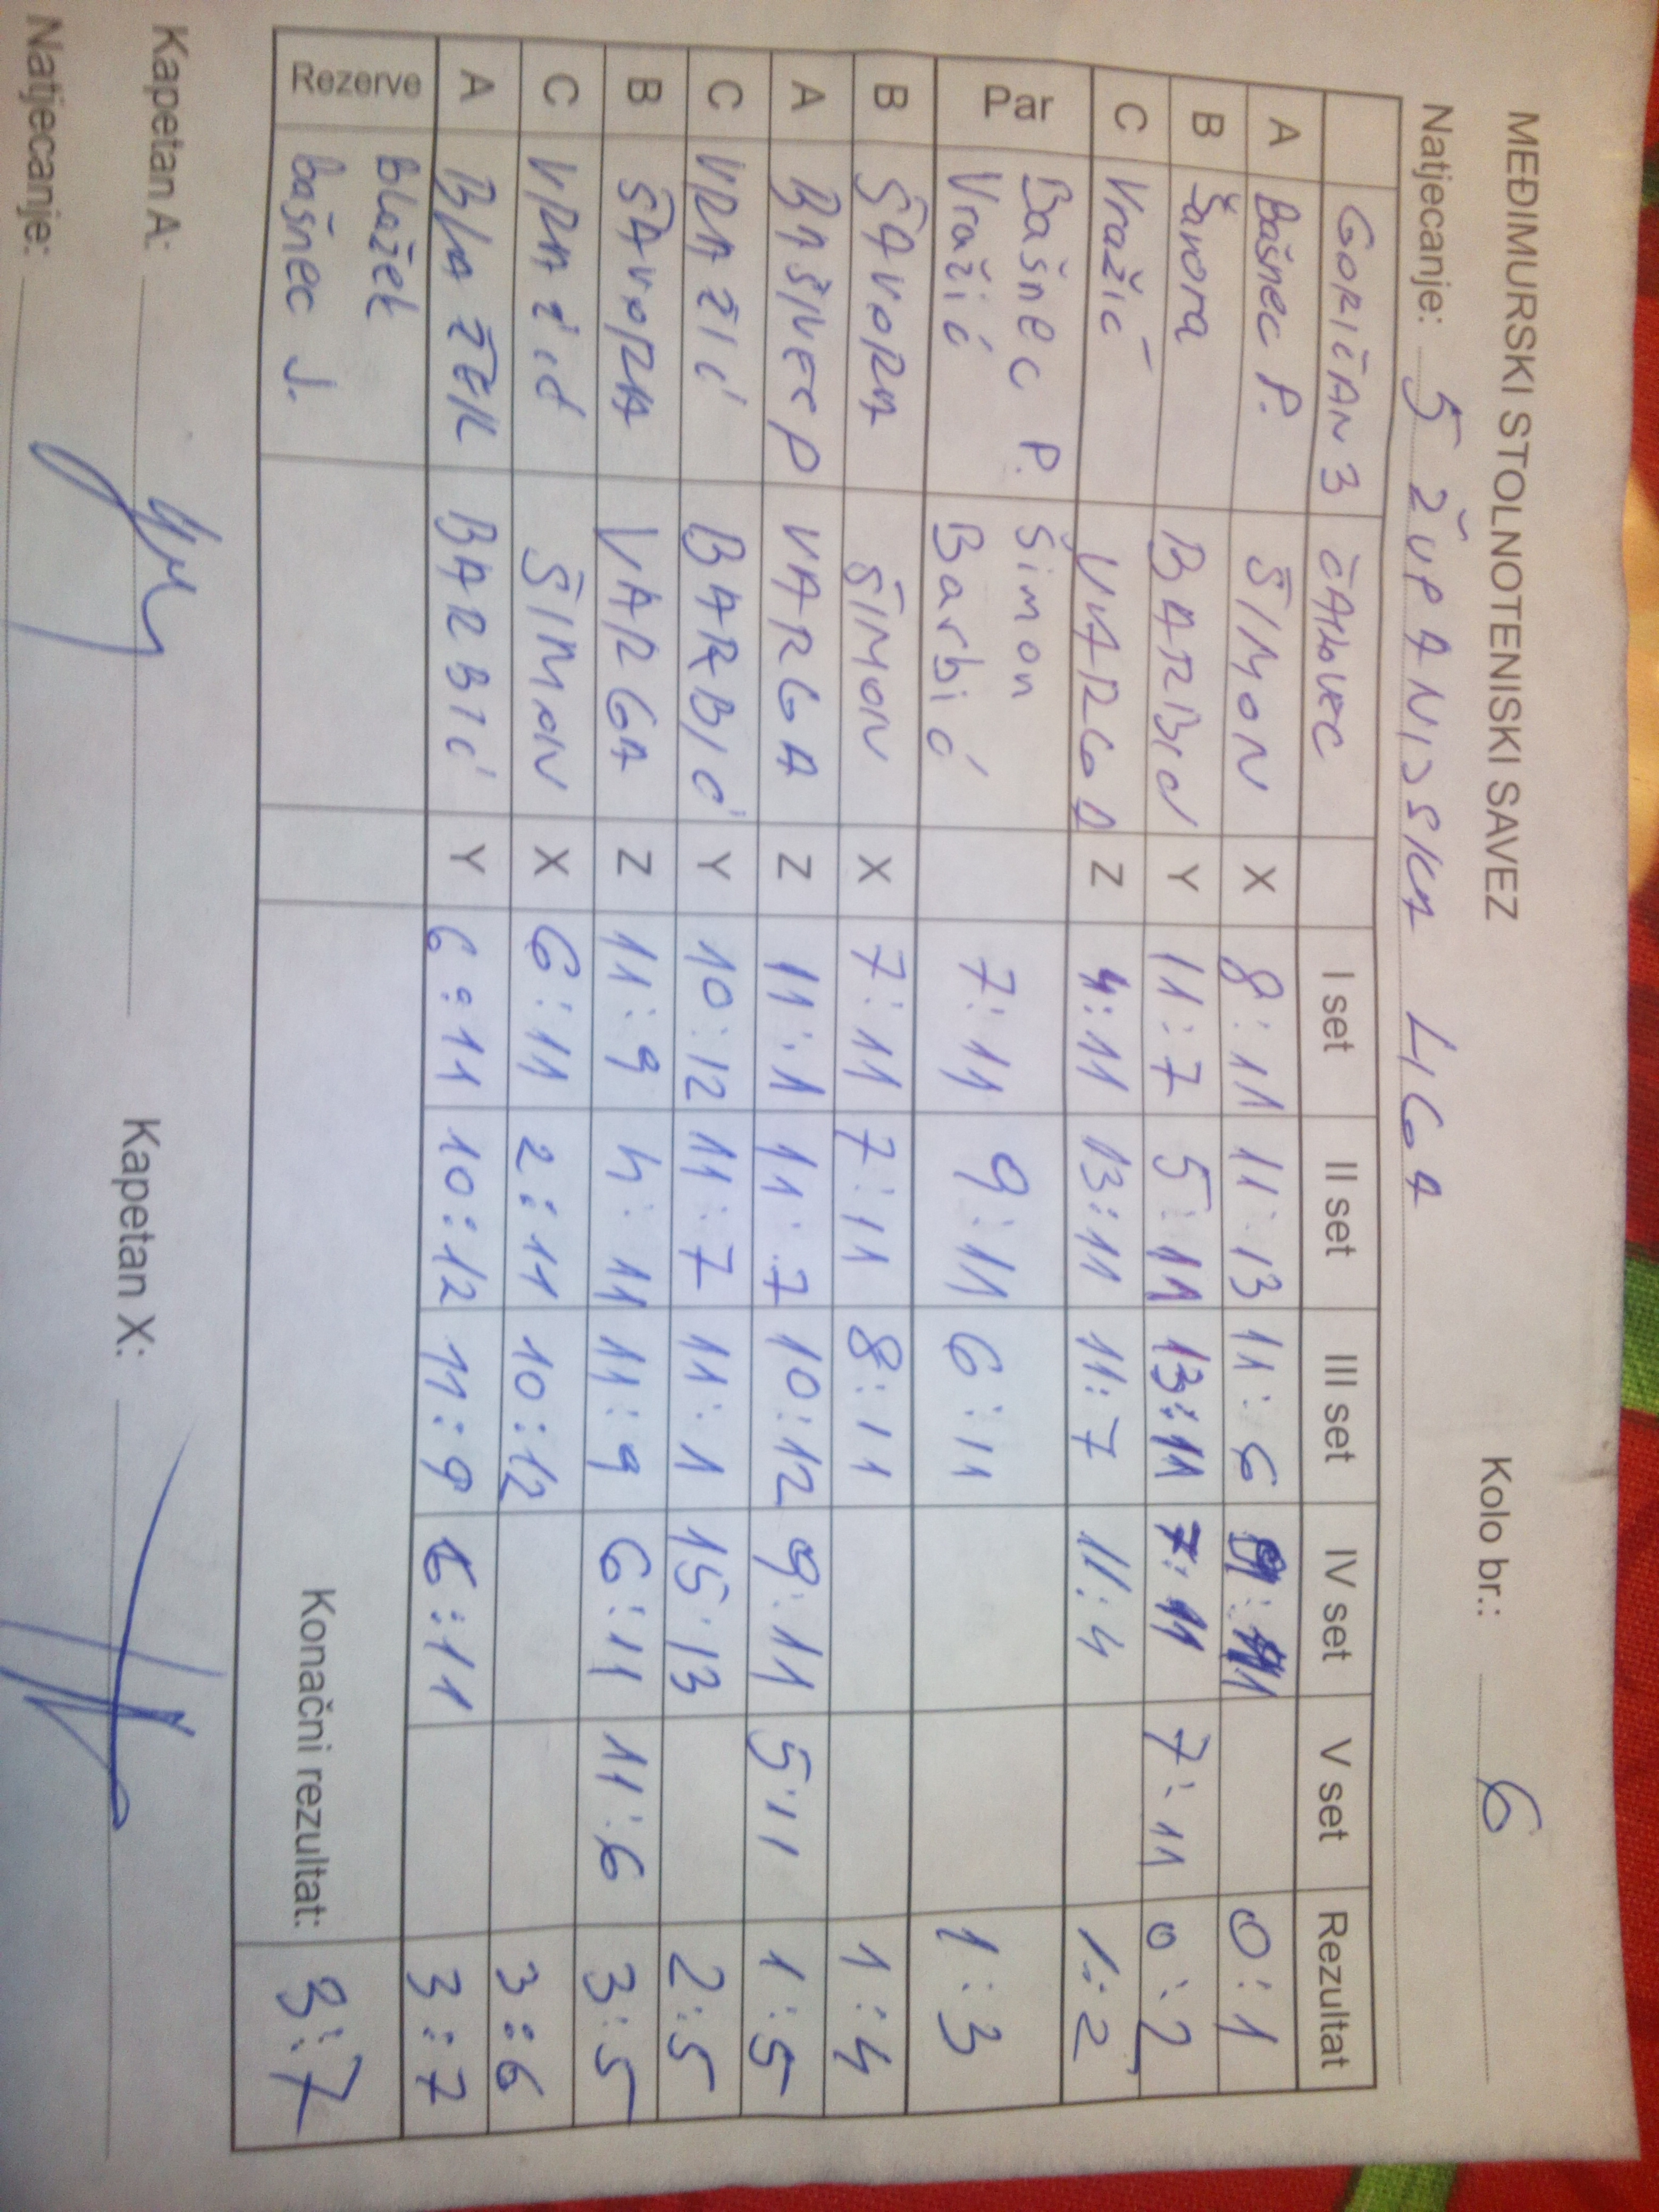 MEĐIMURSKI STOLNOTENISKI SAVEZ
Kolo br.: 6
Natjecanje: 5 ŽUPANIJSKA LIGA
GORIČAN 3 ČAKOVEC I set II set III set IV set V set Rezultat
A Bašnec P. ŠIMON X 8:11 11:13 11:6 0:1
B Šavora BARBIĆ Y 11:7 5:11 13:11 7:11 7:11 0:2
C Vražić VARGA Z 4:11 13:11 11:7 11:4 1:2
Par Bašnec P. Šimon 7:11 9:11 6:11 1:3
Vražić Barbić
B ŠAVORA ŠIMON X 7:11 7:11 8:11 1:4
A BAŠNEC P VARGA Z 11:1 11:7 10:12 9:11 5:11 1:5
C VRAŽIĆ BARBIĆ Y 10:12 11:7 11:1 15:13 2:5
B ŠAVORA VARGA Z 11:9 4:11 11:9 6:11 11:6 3:5
C VRAŽIĆ ŠIMON X 6:11 2:11 10:12 3:6
A BLAŽEK BARBIĆ Y 6:11 10:12 11:9 6:11 3:7
Rezerve blažek
bašnec J.
Konačni rezultat: 3:7
Kapetan A: Kapetan X:
Natjecanje: